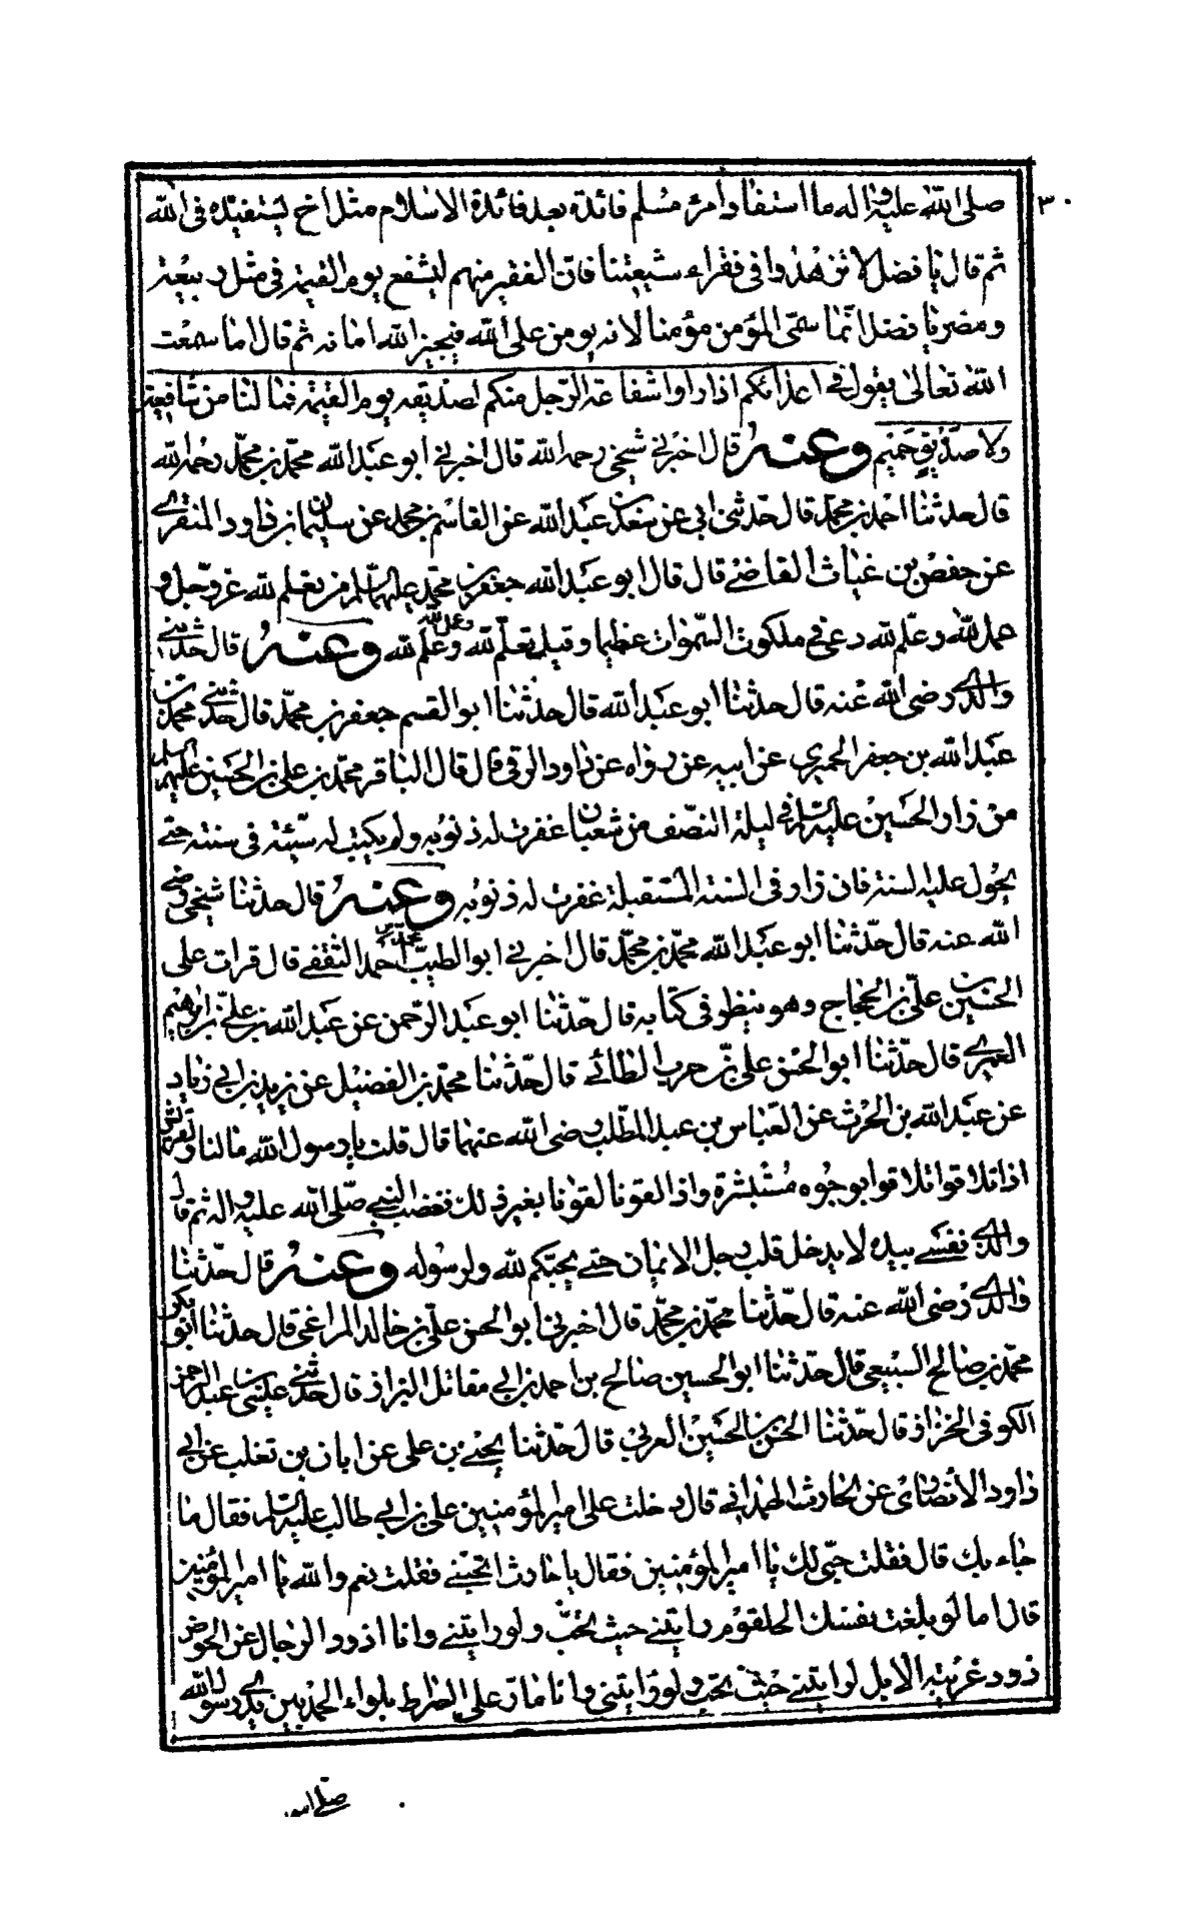 ٣٠
صلى الله عليه واله ما استفاد امرء مسلم فائدة بعد فائدة الاسلام مثل اخ يستفيده في الله
ثم قال يا فضل لا تزهدوا في فقراء شيعتنا فان الفقير منهم ليشفع يوم القيمة في مثل ربيعة
ومضر يا فضل انما سمى المؤمن مؤمنا لانه يومن على الله فيجيز الله امانه ثم قال اما سمعت
الله تعالى يقول في اعدائكم اذا راوا شفاعة الرجل منكم لصديقه يوم القيمة فما لنا من شافعين
ولا صديق حميم وعنه قال اخبرني شيخي رحمه الله قال اخبرني ابو عبد الله محمد بن محمد رحمه الله
قال حدثنا احمد بن محمد قال حدثني ابي عن سعد بن عبد الله عن القاسم بن محمد عن سليمان بن داود المنقري
عن حفص بن غياث القاضي قال قال ابو عبد الله جعفر بن محمد عليهما السلم من تعلم لله عز وجل و
عمل لله وعلم لله دعي في ملكوت السموات عظيما وقيل تعلم لله وعمل لله وعلم لله وعنه قال حدثني
والدي رضي الله عنه قال حدثنا ابو عبد الله قال حدثنا ابو القسم جعفر بن محمد قال حدثني محمد بن
عبد الله بن جعفر الحميري عن ابيه عن رواه عن داود الرقي قال قال الباقر محمد بن علي بن الحسين عليهم السلم
من زار الحسين عليه السلم في ليلة النصف من شعبان غفرت له ذنوبه ولم يكتب له سيئة في سنته حتى
يحول عليه السنة فان زار في السنة المستقبلة غفرت له ذنوبه وعنه قال حدثنا شيخي رضي
الله عنه قال حدثنا ابو عبد الله محمد بن محمد قال اخبرني ابو الطيب محمد بن احمد الثقفي قال قرات على
الحسين بن علي بن الحجاج وهو ينظر في كتابه قال حدثنا ابو عبد الرحمن عن عبد الله بن علي بن ابراهيم
العمري قال حدثنا ابو الحسن علي بن حرب الطائي قال حدثنا محمد بن الفضيل عن يزيد بن ابي زياد
عن عبد الله بن الحرث عن العباس بن عبد المطلب رضي الله عنهما قال قلت يا رسول الله ما لنا ولقريش
اذا تلاقوا تلاقوا بوجوه مستبشرة واذا لقونا لقونا بغير ذلك فغضب النبي صلى الله عليه واله ثم قال
والذي نفسي بيده لا يدخل قلب رجل الايمان حتى يحبكم لله ولرسوله وعنه قال حدثنا
والدي رضي الله عنه قال حدثنا محمد بن محمد قال اخبرني ابو الحسن علي بن خالد المراغي قال حدثنا ابو بكر
محمد بن صالح السبيعي قال حدثنا ابو الحسين صالح بن احمد بن ابي مقاتل البزاز قال حدثني عيسى بن عبد الرحمن
الكوفي الخزاز قال حدثنا الحسن بن الحسين العرني قال حدثنا يحيى بن علي عن ابان بن تغلب عن ابي
داود الانصاري عن الحارث الهمداني قال دخلت على امير المؤمنين علي بن ابي طالب عليه السلم فقال ما
جاء بك قال فقلت حبي لك يا امير المؤمنين فقال يا حارث اتحبني فقلت نعم والله يا امير المؤمنين
قال اما لو بلغت نفسك الحلقوم رايتني حيث تحب ولو رايتني وانا اذود الرجال عن الحوض
ذود غريبة الابل لرايتني حيث تحب ولو رايتني وانا مار على الصراط بلواء الحمد بين يدي رسول الله
صلى الله